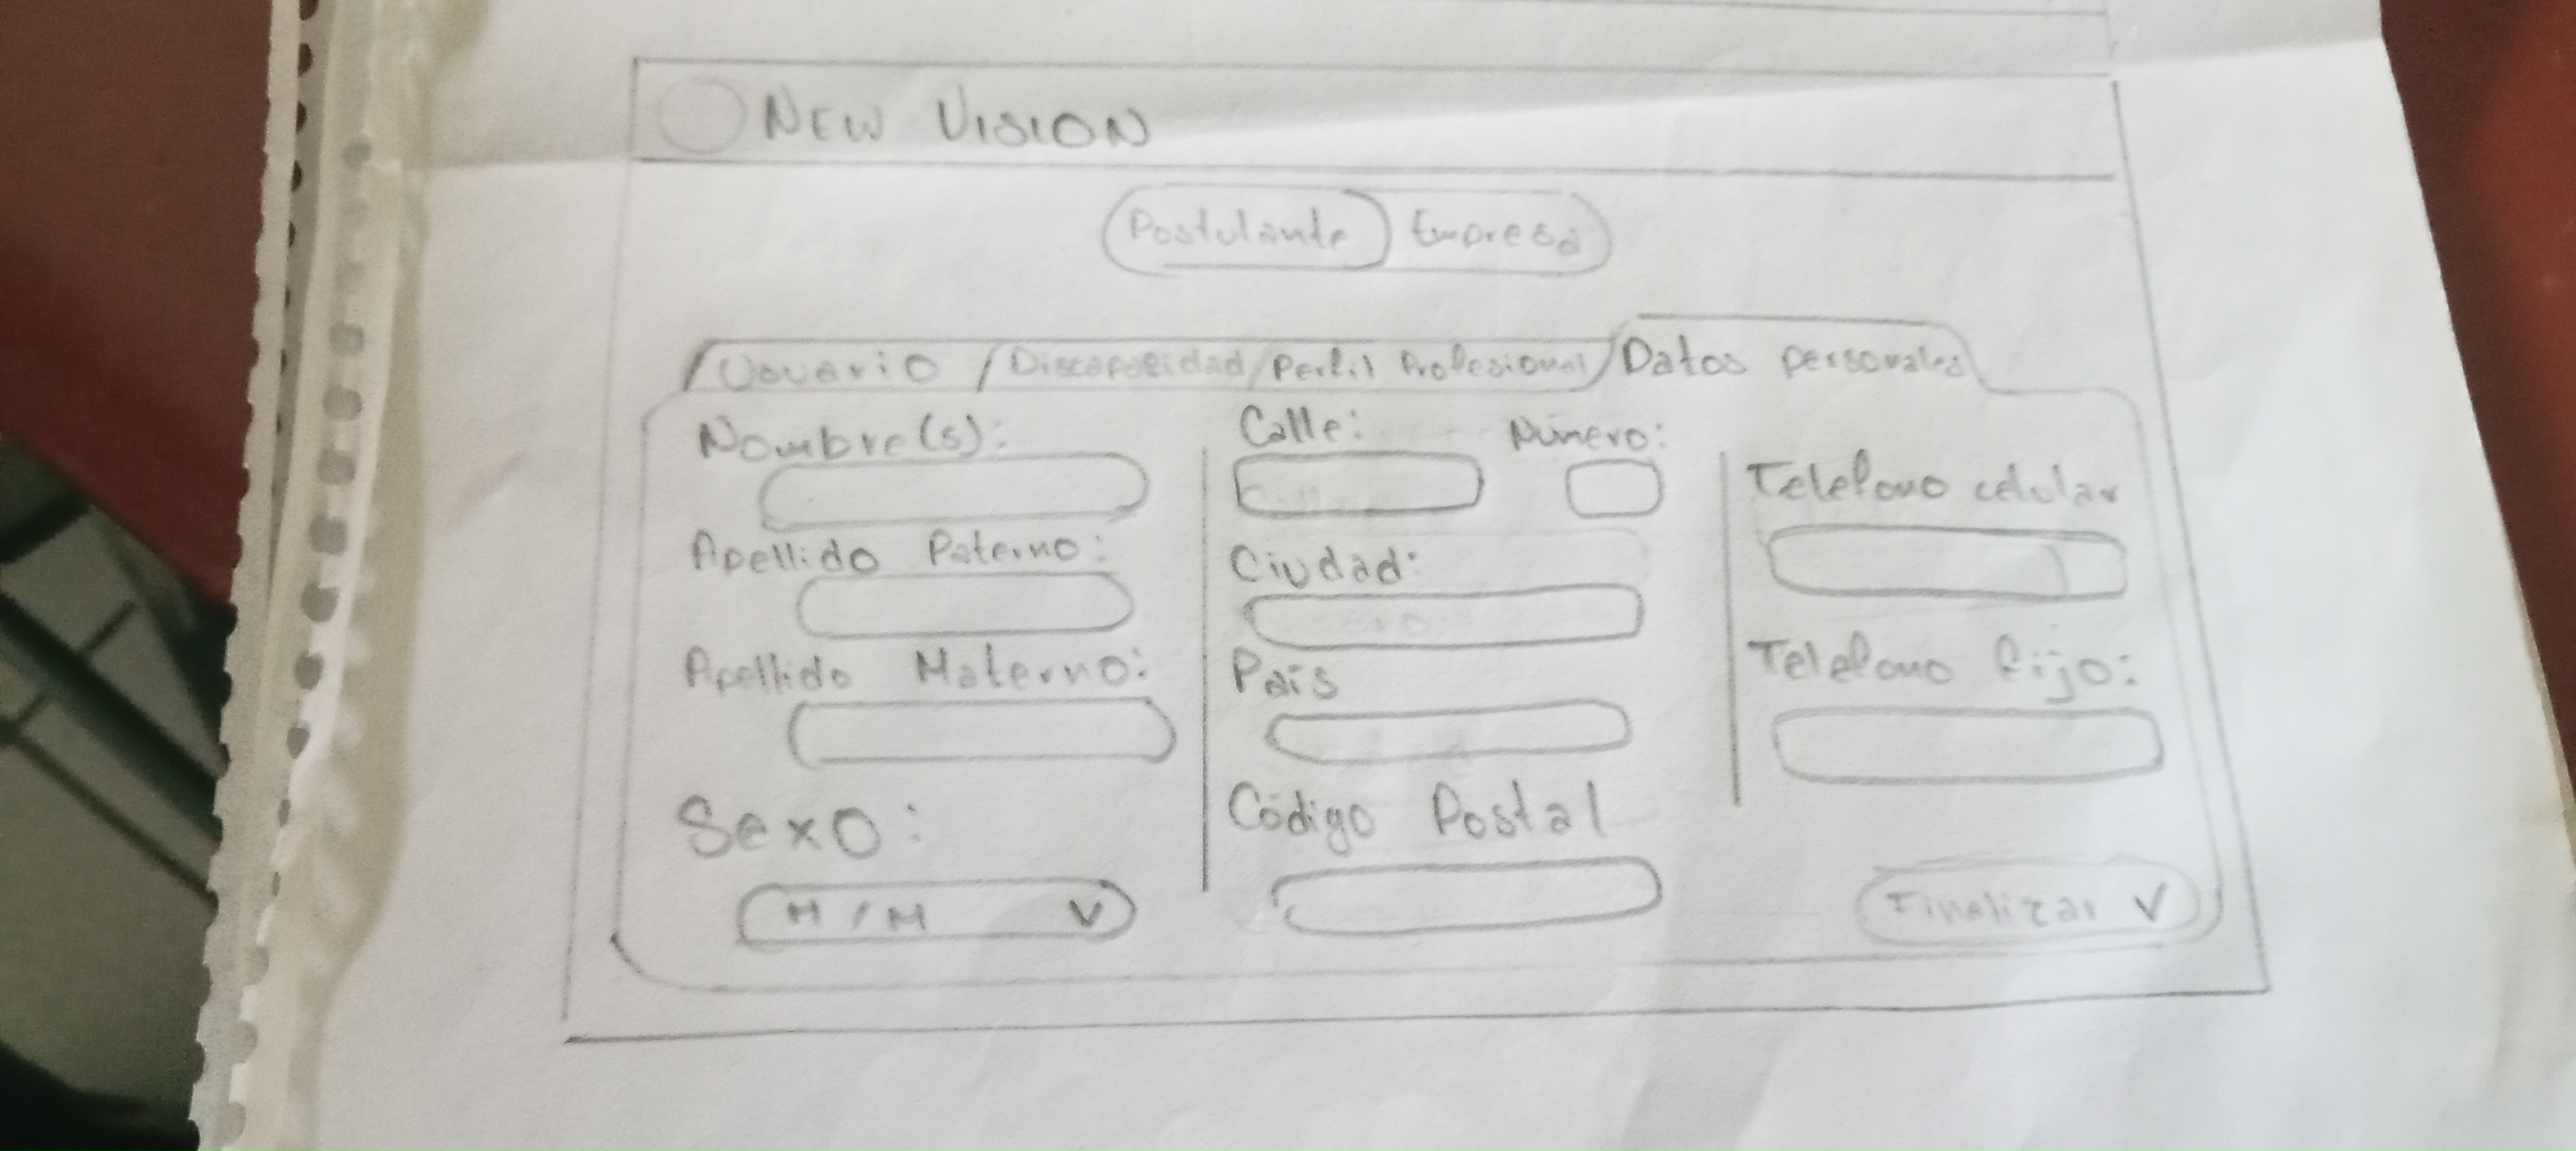 NEW VISION
Postulante Empresa
Usuario / Discapacidad / Perfil Profesional / Datos personales
Nombre(s):
Apellido Paterno:
Apellido Materno:
Sexo:
H / M V
Calle: Número:
Ciudad:
País
Código Postal
Telefono celular
Telefono fijo:
Finalizar ✓